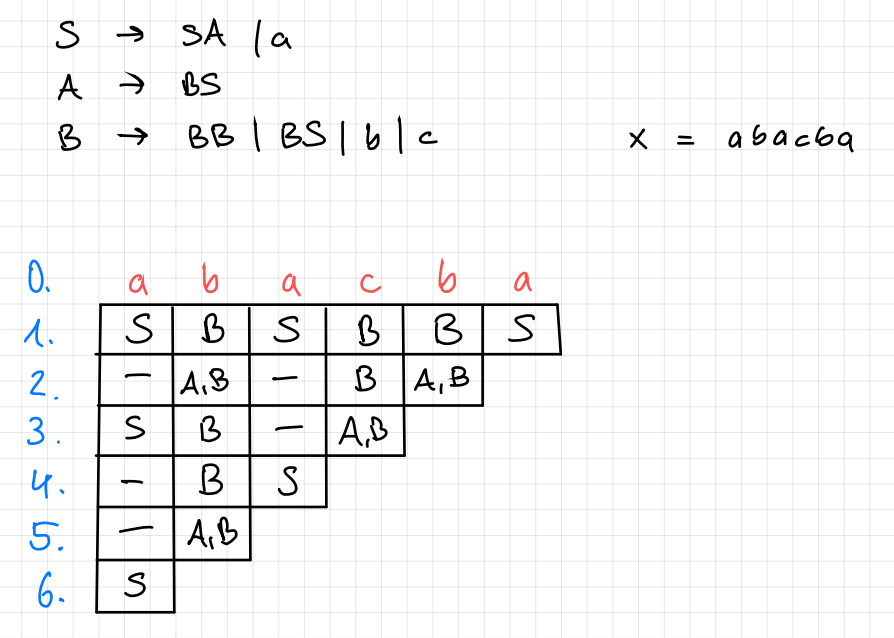 S → SA | a
A → BS
B → BB | BS | b | c x = abacba
0. a b a c b a
1. S B S B B S
2. — A,B — B A,B
3. S B — A,B
4. — B S
5. — A,B
6. S